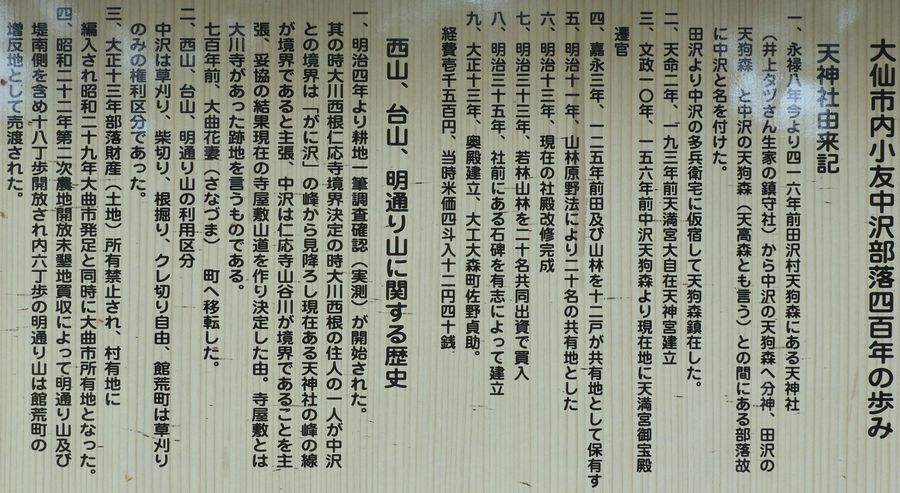 大仙市内小友中沢部落四百年の歩み
天神社由来記
一、永禄八年今より四一六年前田沢村天狗森にある天神社
（井上タヅさん生家の鎮守社）から中沢の天狗森へ分神、田沢の
天狗森　と中沢の天狗森（天高森とも言う）との間にある部落故
に中沢と名を付けた。
田沢より中沢の多兵衛宅に仮宿して天狗森鎮在した。
二、天命二年、一九三年前天満宮大自在天神宮建立
三、文政一〇年、一五六年前中沢天狗森より現在地に天満宮御宝殿
遷官
四、嘉永三年、一二五年前田及び山林を十二戸が共有地として保有す
五、明治十一年、山林原野法により二十名の共有地とした
六、明治十三年、現在の社殿改修完成
七、明治三十三年、若林山林を二十名共同出資で買入
八、明治三十五年、社前にある石碑を有志によって建立
九、大正十三年、奥殿建立、大工大森町佐野貞助。
経費壱千五百円、当時米価四斗入十二円四十銭
西山、台山、明通り山に関する歴史
一、明治四年より耕地一筆調査確認（実測）が開始された。
其の時大川西根仁応寺境界決定の時大川西根の住人の一人が中沢
との境界は「がに沢」の峰から見降ろし現在ある天神社の峰の線
が境界であると主張、中沢は仁応寺山谷川が境界であることを主
張、妥協の結果現在の寺屋敷山道を作り決定した由。寺屋敷とは
大川寺があった跡地を言うものである。
七百年前、大曲花妻（さなづま）　町へ移転した。
二、西山、台山、明通り山の利用区分
中沢は草刈り、柴切り、根掘り、クレ切り自由、館荒町は草刈り
のみの権利区分であった。
三、大正十三年部落財産（土地）所有禁止され、村有地に
編入され昭和二十九年大曲市発足と同時に大曲市所有地となった。
四、昭和二十二年第二次農地開放未墾地買収によって明通り山及び
堤南側を含め十八丁歩開放され内六丁歩の明通り山は館荒町の
増反地として売渡された。